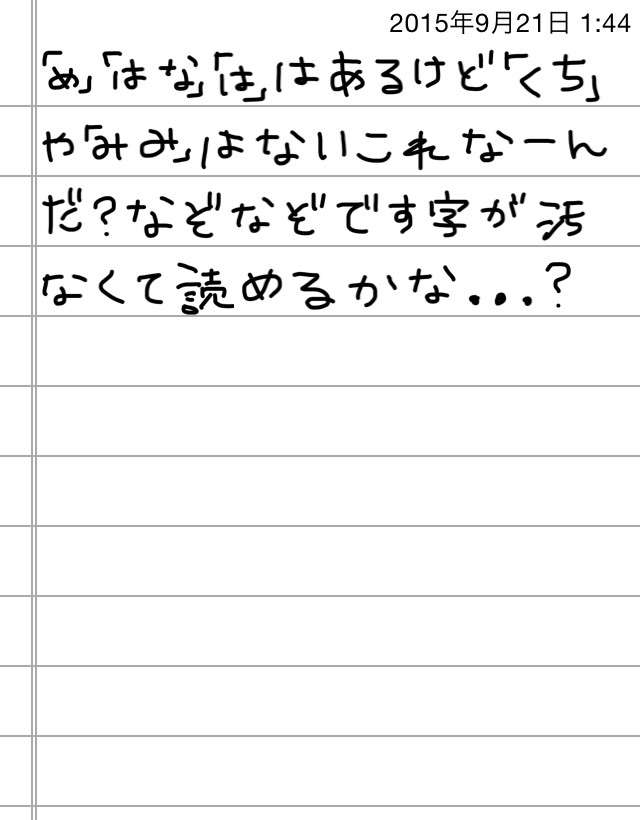 2015年9月21日 1:44
「め」「はな」「は」はあるけど「くち」
や「みみ」はないこれなーん
だ？なぞなぞです字が汚
なくて読めるかな...？